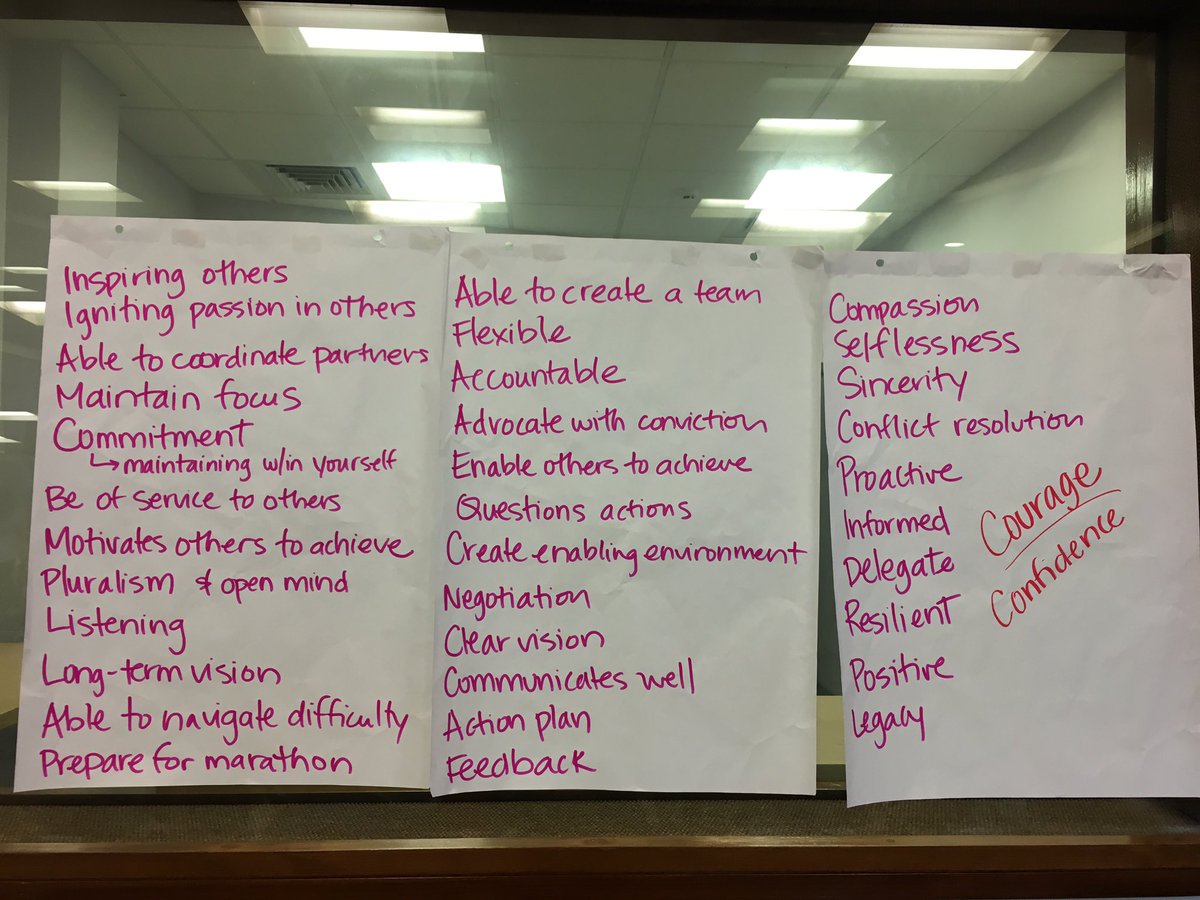 Inspiring others
Igniting passion in others
Able to coordinate partners
Maintain focus
Commitment
↳ maintaining w/in yourself
Be of service to others
Motivates others to achieve
Pluralism & open mind
Listening
Long-term vision
Able to navigate difficulty
Prepare for marathon
Able to create a team
Flexible
Accountable
Advocate with conviction
Enable others to achieve
Questions actions
Create enabling environment
Negotiation
Clear vision
Communicates well
Action plan
Feedback
Compassion
Selflessness
Sincerity
Conflict resolution
Proactive
Informed
Delegate
Resilient
Positive
Legacy
Courage
Confidence